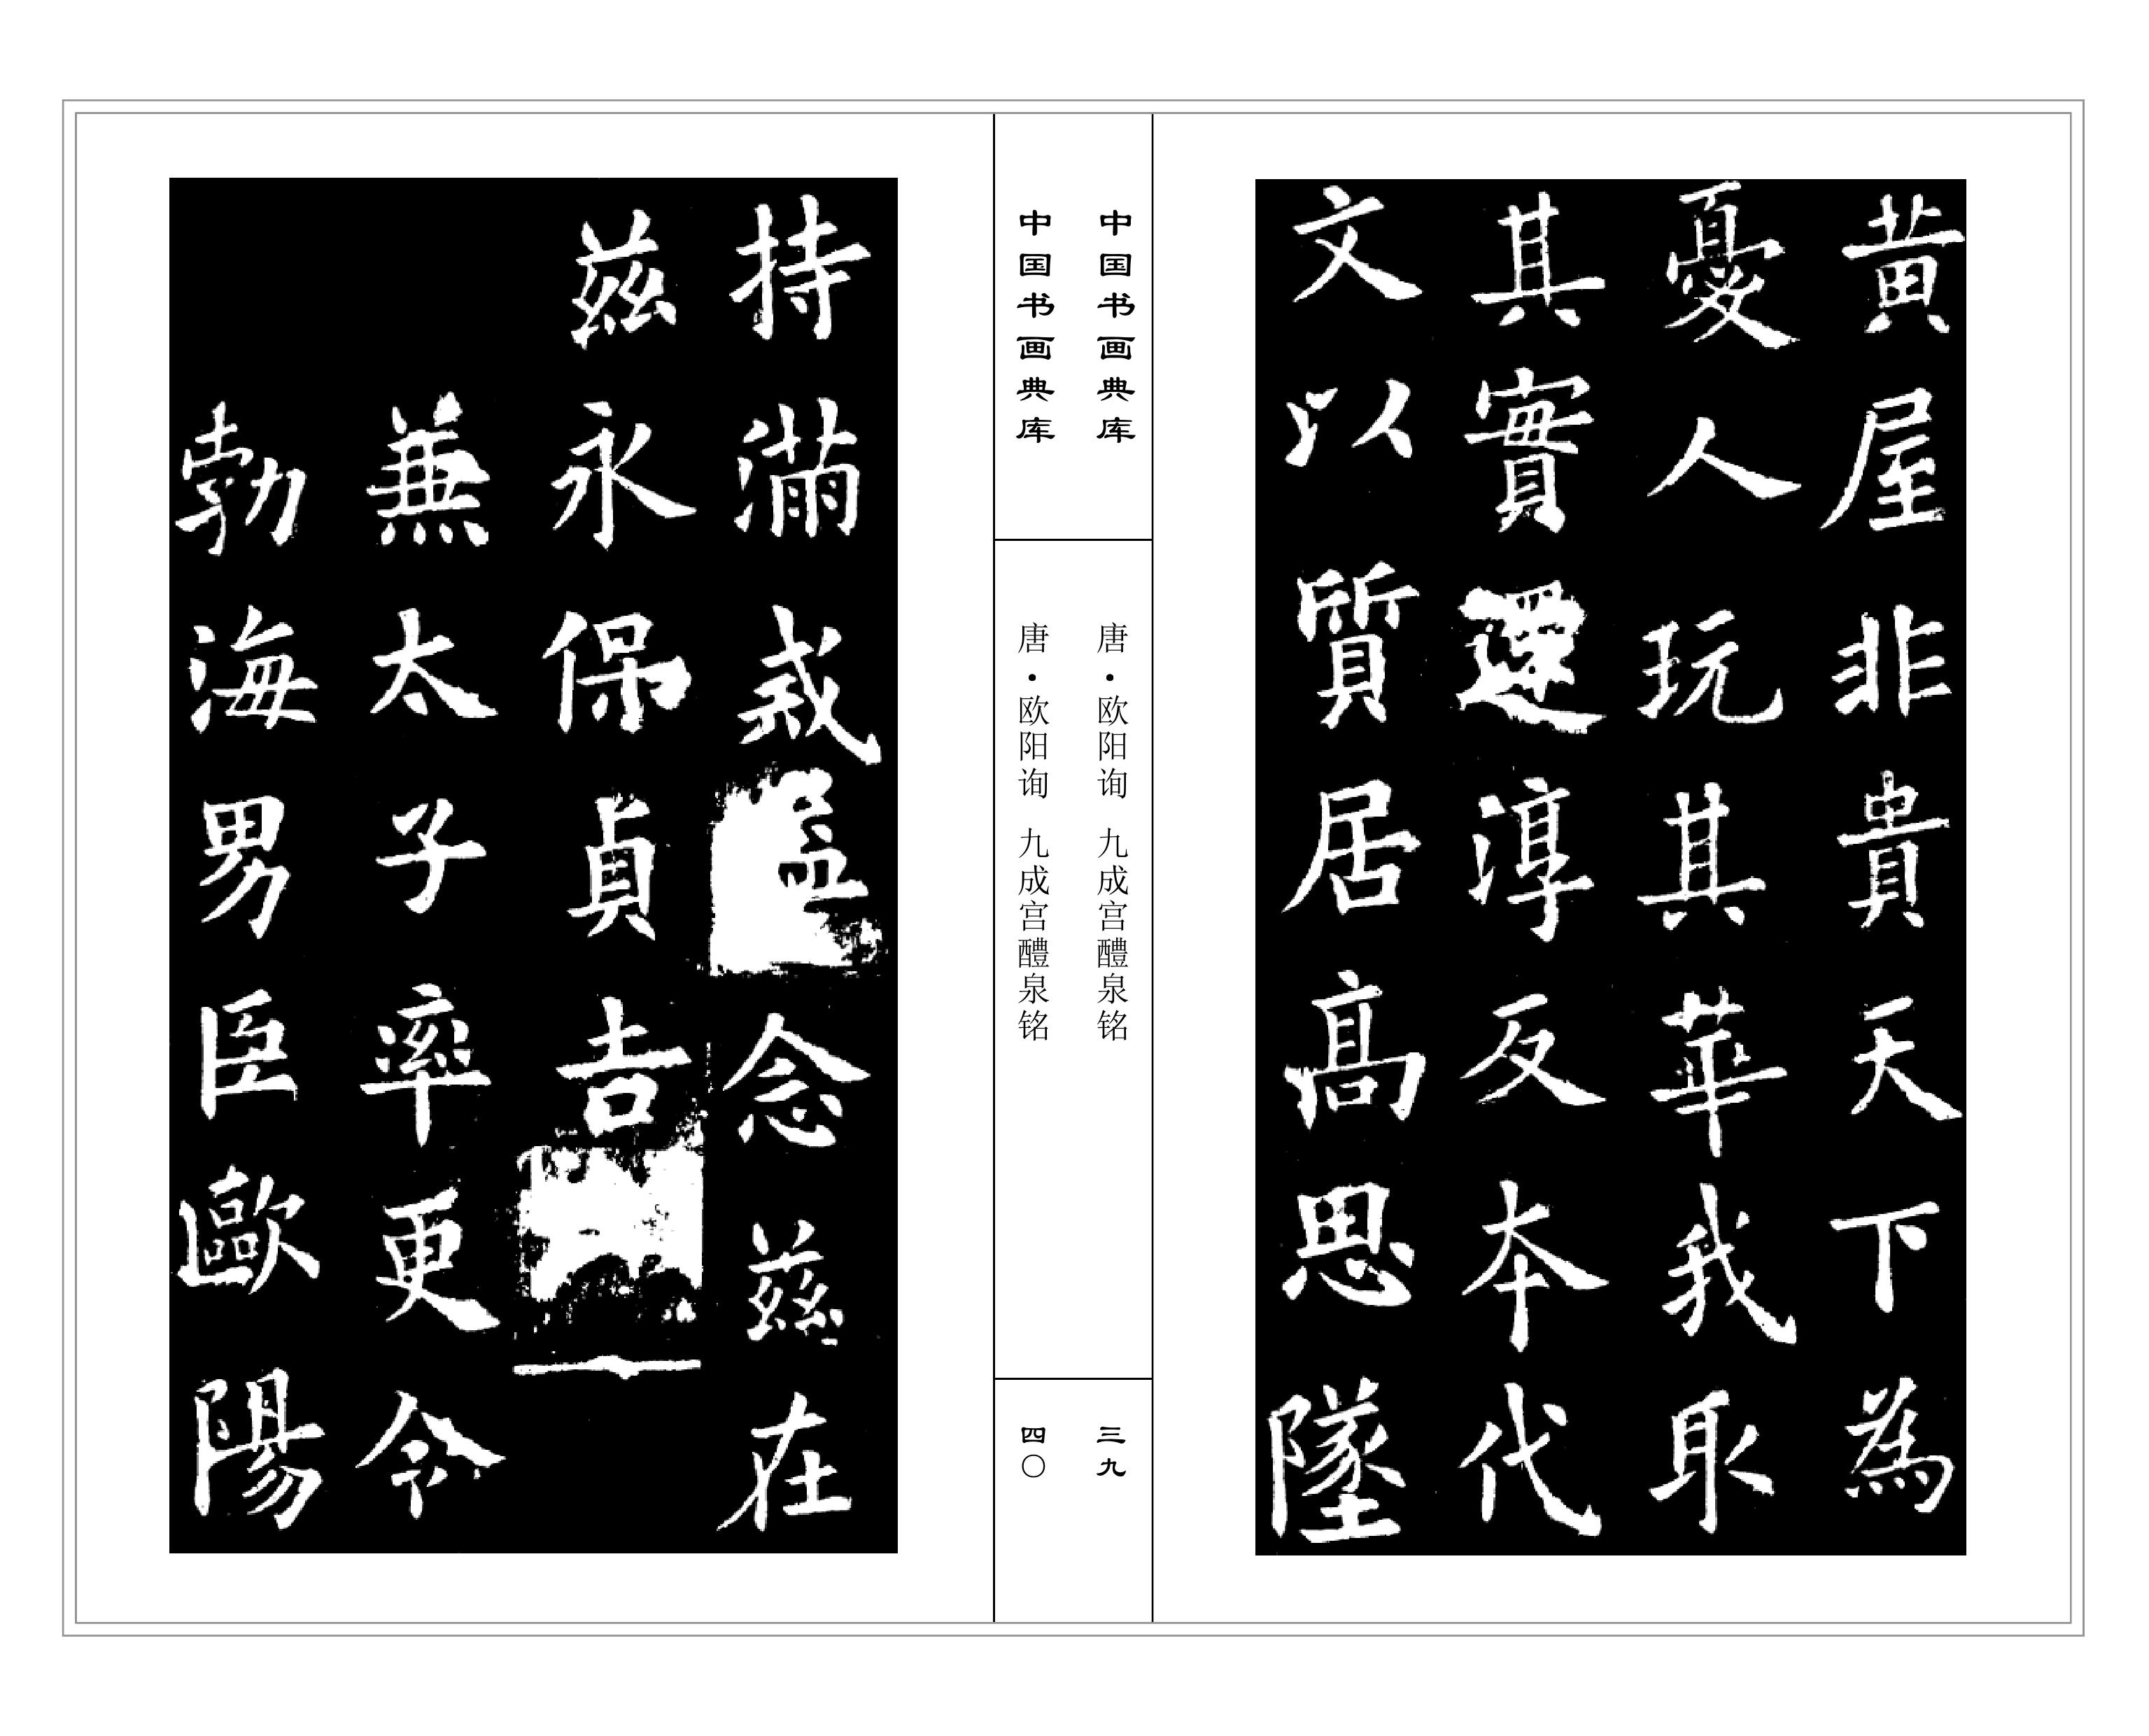 黄屋非貴天下為
憂人玩其華我取
其實還淳反本代
文以質居高思墜
中国书画典库
唐·欧阳询 九成宫醴泉铭
三九
中国书画典库
唐·欧阳询 九成宫醴泉铭
四〇
持滿戒溢念茲在
茲永保貞吉
兼太子率更令
勃海男臣歐陽